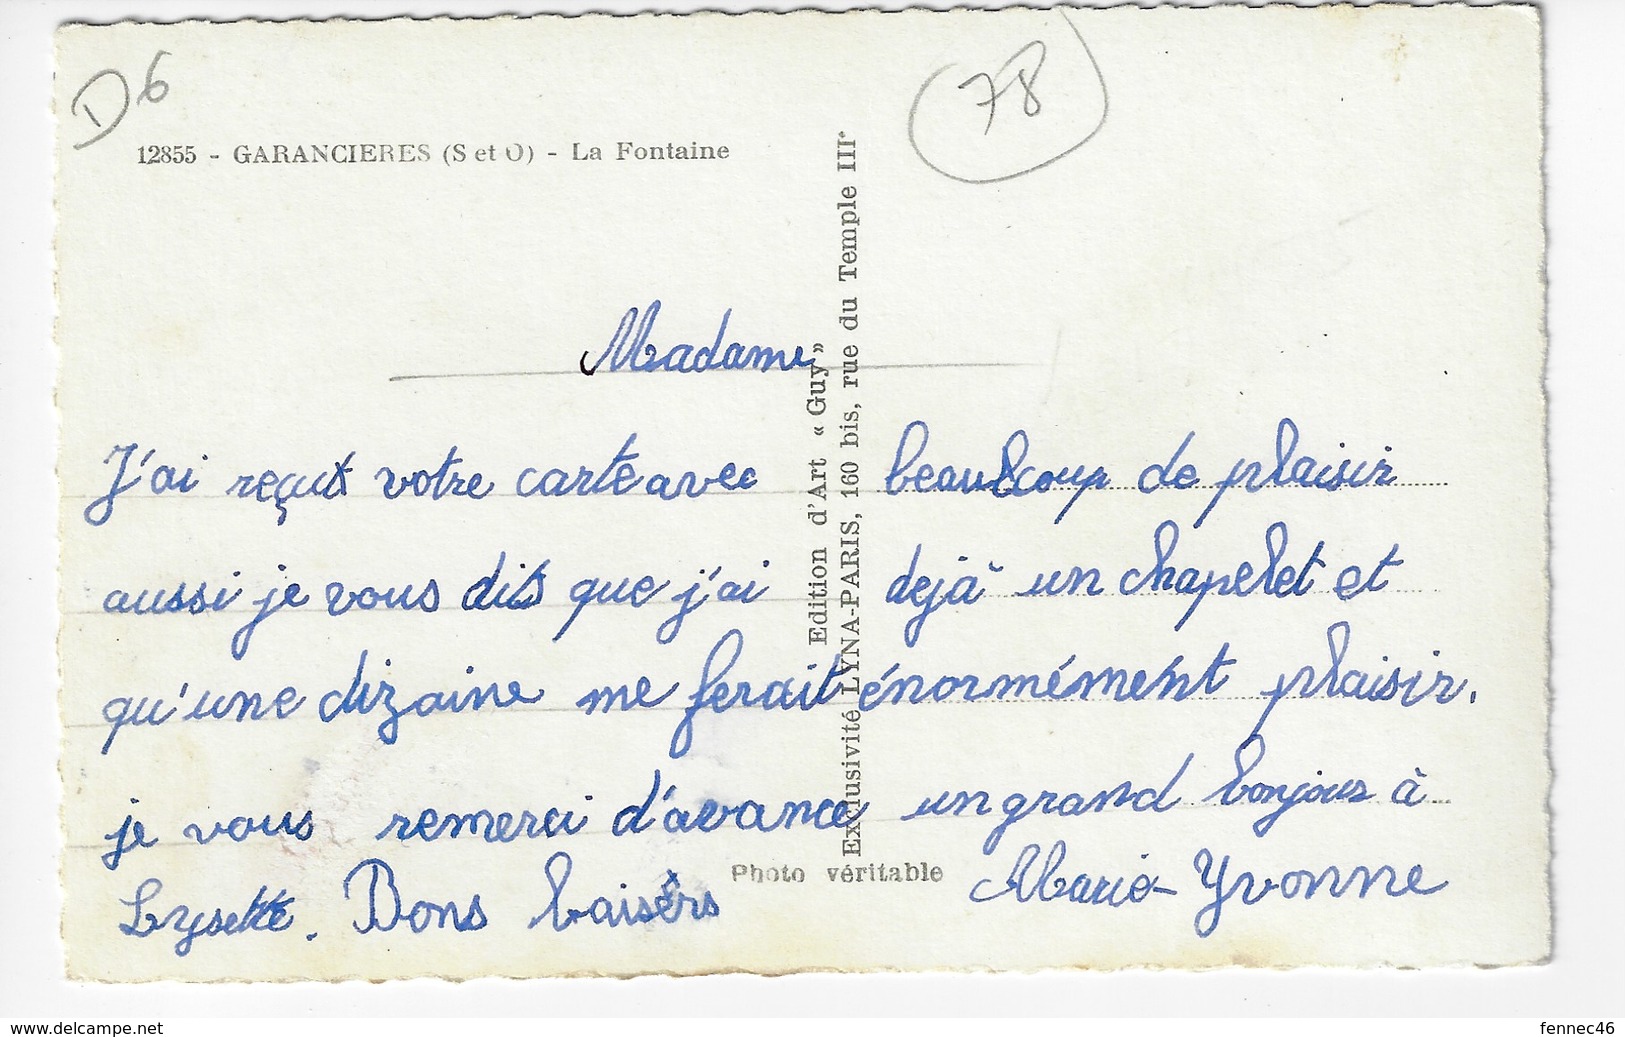 D6
78
12855 - GARANCIERES (S et O) - La Fontaine
Madame
J'ai reçut votre carte avec beaucoup de plaisir
aussi je vous dis que j'ai dejà un chapelet et
qu'une dizaine me ferait énormément plaisir.
je vous remerci d'avance un grand bonjour à
Lysette. Bons baisers Marie-Yvonne
Edition d'Art « Guy »
Exclusivité LYNA-PARIS, 160 bis, rue du Temple IIIe
Photo véritable
www.delcampe.net
fennec46